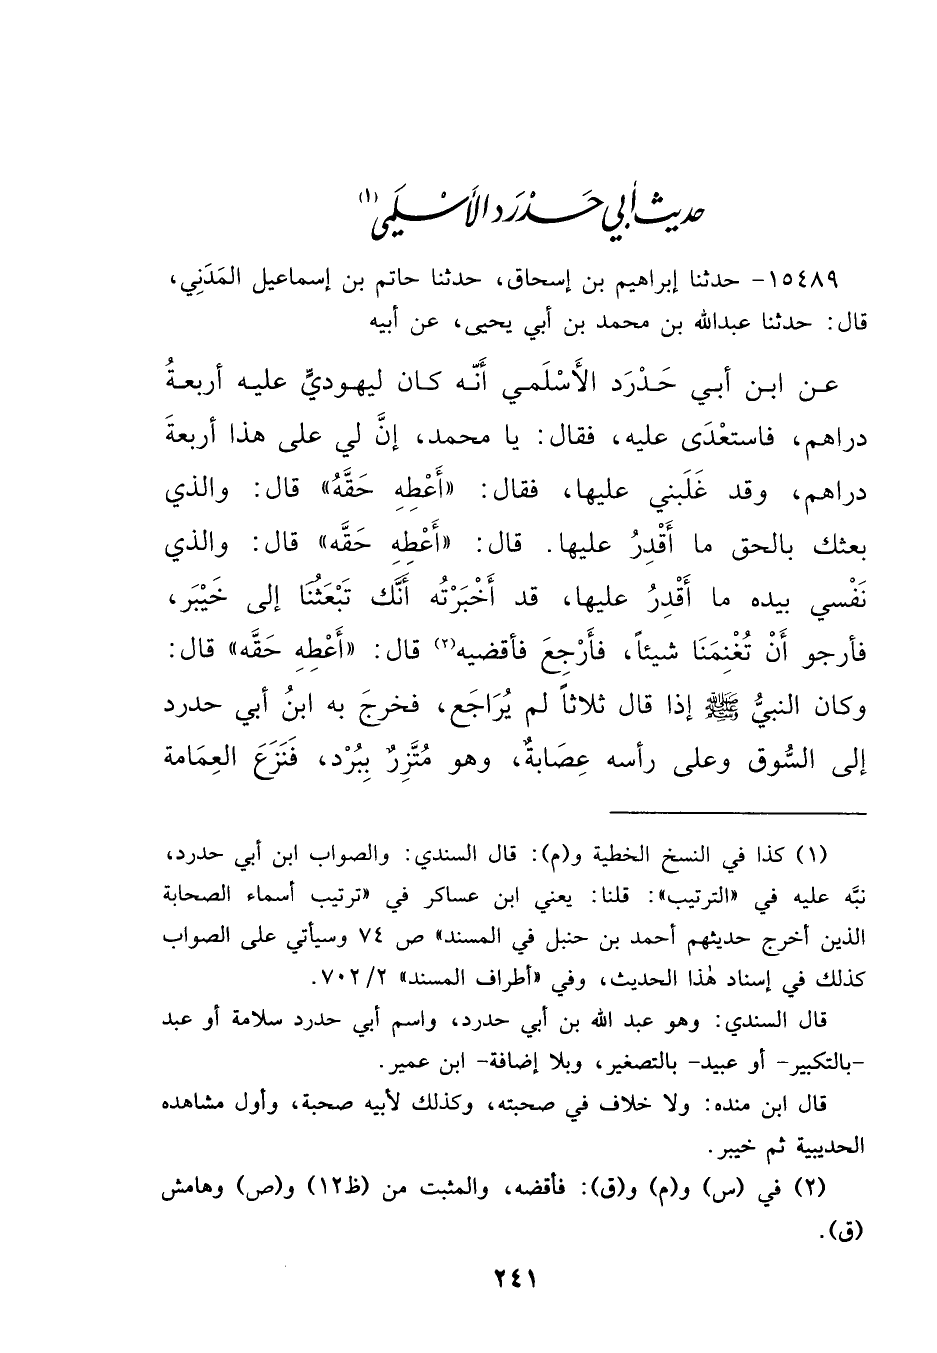 حديث أبي حَدْرَد الأَسْلَمي(١)
١٥٤٨٩- حدثنا إبراهيم بن إسحاق، حدثنا حاتم بن إسماعيل المَدَنِي،
قال: حدثنا عبدالله بن محمد بن أبي يحيى، عن أبيه
عن ابن أبي حَدْرَد الأَسْلَمي أَنَّه كان ليهوديٍّ عليه أربعةُ
دراهم، فاستعْدَى عليه، فقال: يا محمد، إنَّ لي على هذا أربعةَ
دراهم، وقد غَلَبني عليها، فقال: «أَعْطِهِ حَقَّهُ» قال: والذي
بعثك بالحق ما أَقْدِرُ عليها. قال: «أَعْطِهِ حَقَّه» قال: والذي
نَفْسي بيده ما أَقْدِرُ عليها، قد أَخْبَرْتُه أَنَّك تَبْعَثُنَا إلى خَيْبَر،
فأرجو أَنْ تُغْنِمَنَا شيئاً، فأَرْجِعَ فأقضيه(٢) قال: «أَعْطِهِ حَقَّه» قال:
وكان النبيُّ ﷺ إذا قال ثلاثاً لم يُرَاجَع، فخرجَ به ابنُ أبي حدرد
إلى السُّوق وعلى رأسه عِصَابةٌ، وهو مُتَّزِرٌ بِبُرْد، فَنَزَعَ العِمَامة
(١) كذا في النسخ الخطية و(م): قال السندي: والصواب ابن أبي حدرد،
نبَّه عليه في «الترتيب»: قلنا: يعني ابن عساكر في «ترتيب أسماء الصحابة
الذين أخرج حديثهم أحمد بن حنبل في المسند» ص ٧٤ وسيأتي على الصواب
كذلك في إسناد هٰذا الحديث، وفي «أطراف المسند» ٧٠٢/٢.
قال السندي: وهو عبد الله بن أبي حدرد، واسم أبي حدرد سلامة أو عبد
-بالتكبير- أو عبيد- بالتصغير، وبلا إضافة- ابن عمير.
قال ابن منده: ولا خلاف في صحبته، وكذلك لأبيه صحبة، وأول مشاهده
الحديبية ثم خيبر.
(٢) في (س) و(م) و(ق): فأقضه، والمثبت من (ظ١٢) و(ص) وهامش
(ق).
٢٤١